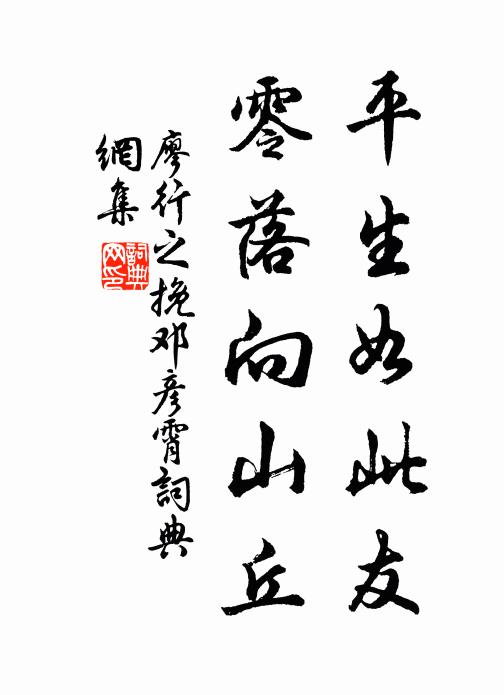 平生如此友
零落向山丘
廖行之挽邓彦霄詞典
網集
詞典
网印